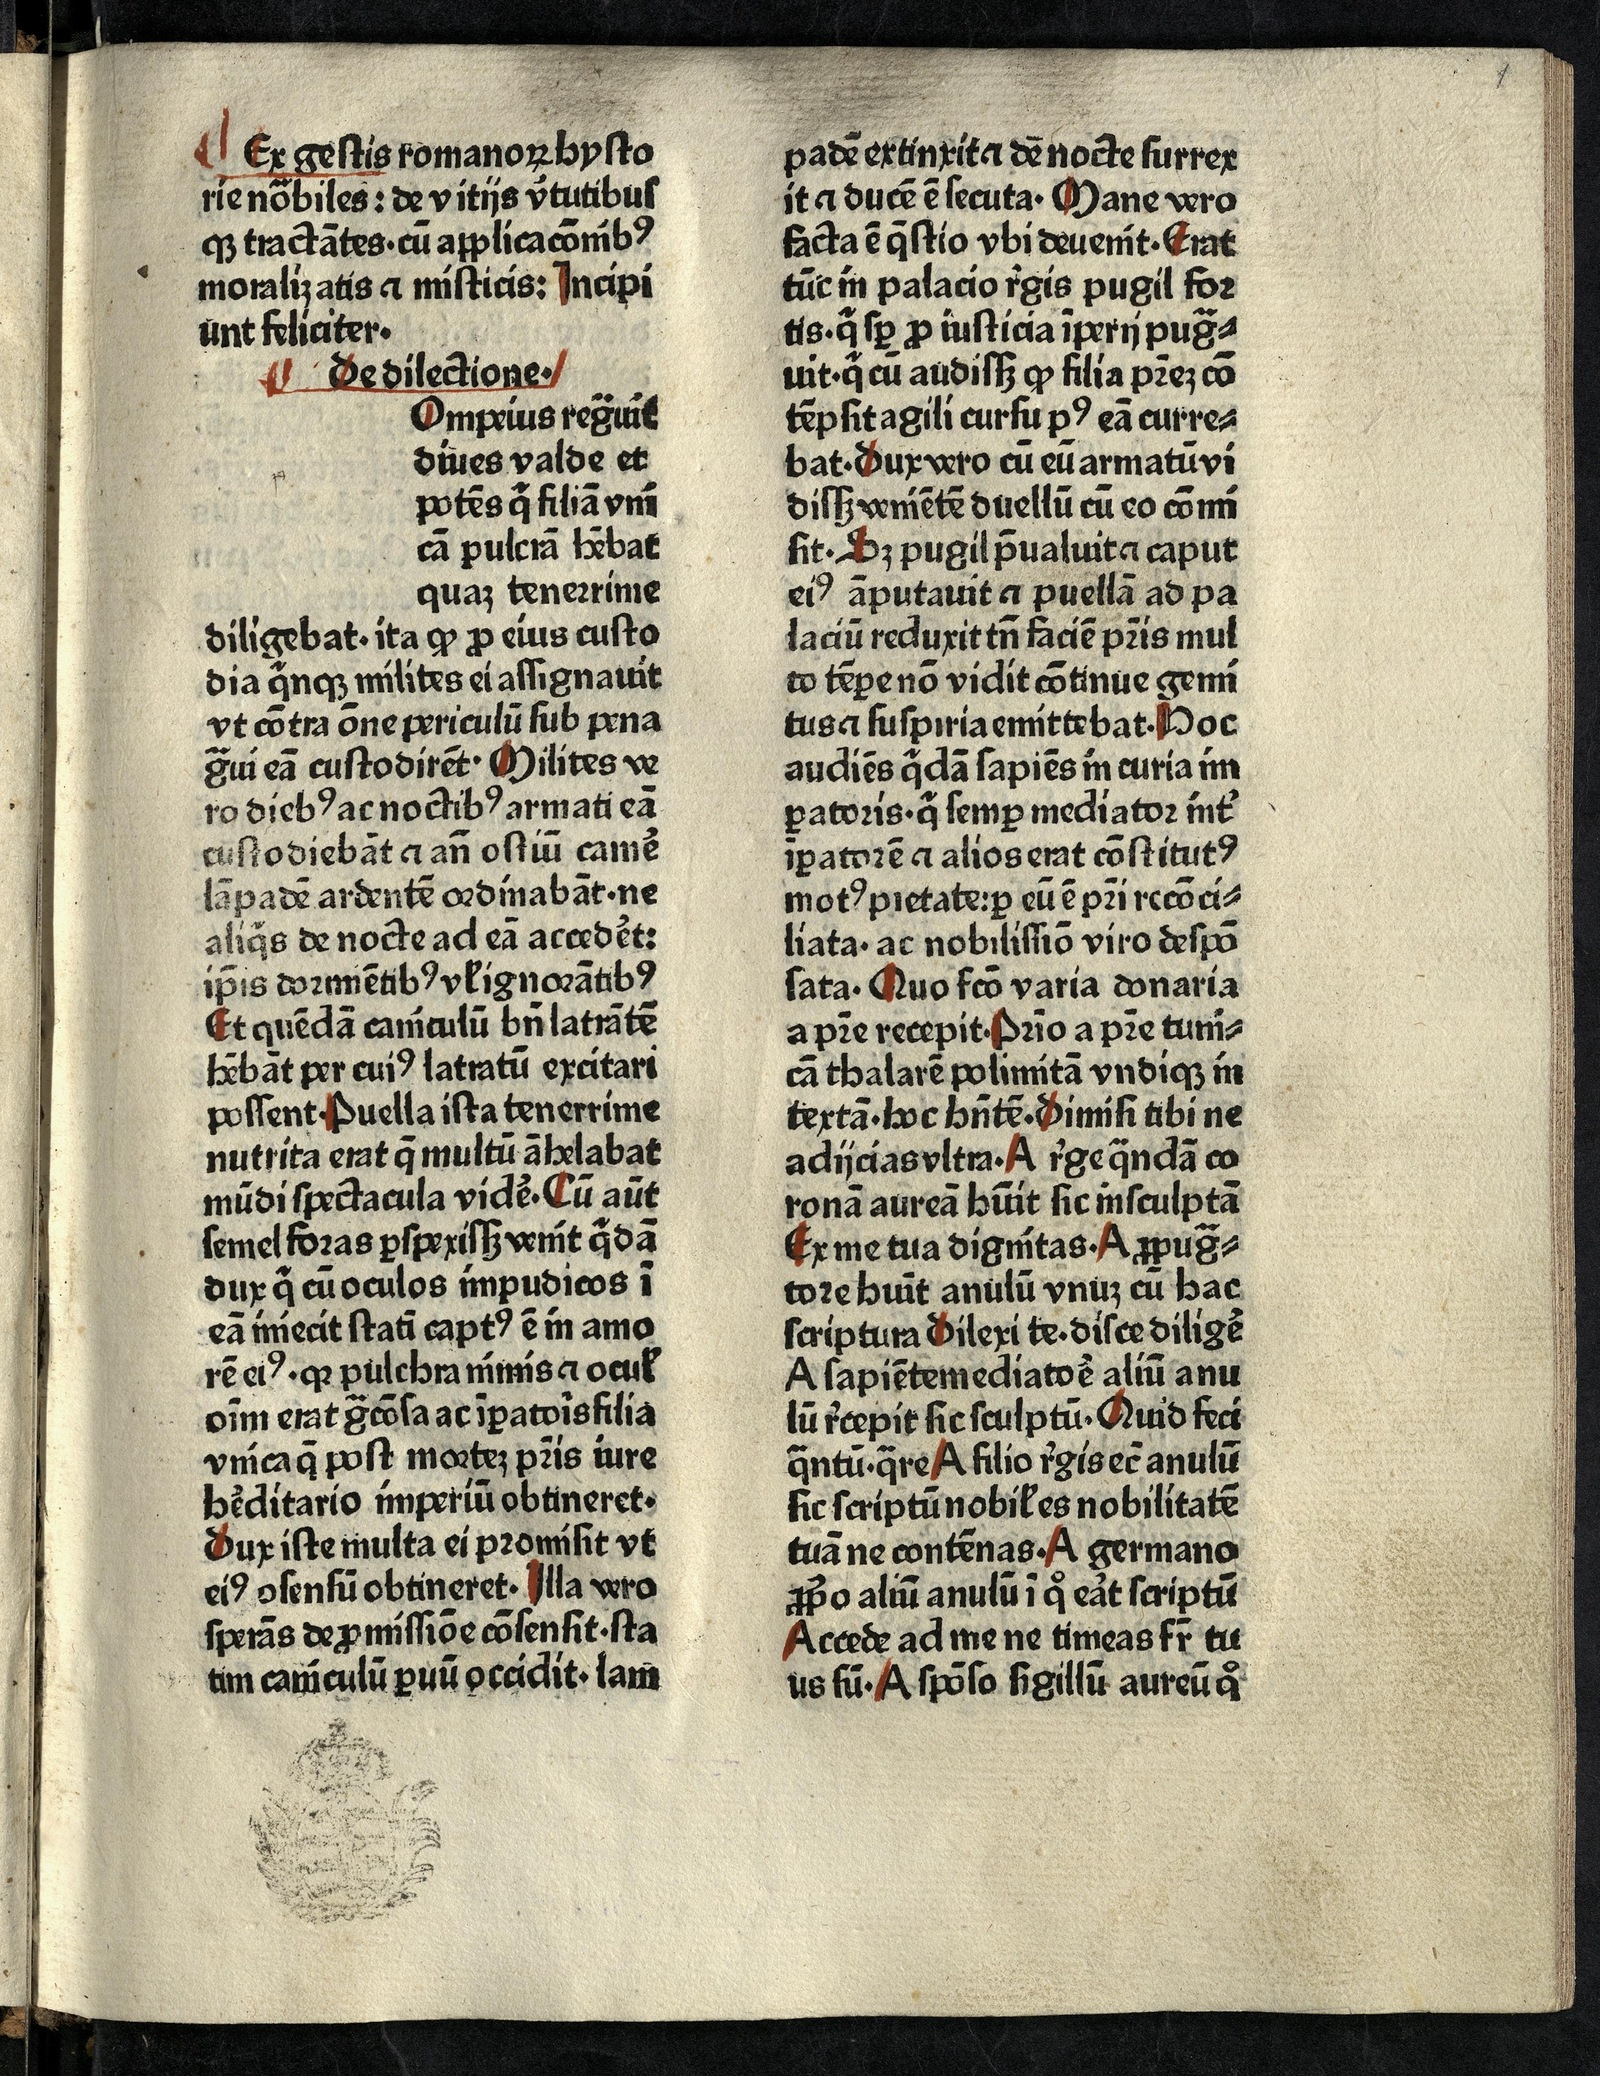 1
Ex gestis romanoꝝ hysto
rie nō̃biles: de vitijs v̾tutibus
qꝫ tractātes· cū applicacōnibꝰ
moralizatis ⁊ misticis: Incipi
unt feliciter·
De dilectione·
Ompeius regͣuit
diues valde et
potēs qͥ filiā vni
cā pulcrā hēbat
quaꝫ tenerrime
diligebat· ita ꝙ ꝓ eius custo
dia qͥnqꝫ milites ei assignauit
vt cōtra ōne periculū sub pena
gͣui eā custodirēt· Milites ve
ro diebꝰ ac noctibꝰ armati eā
custodiebāt ⁊ an̄ ostiū camē̾
lāpadē ardentē ordinabāt· ne
aliqͥs de nocte ad eā accede̾t:
ip̄is dormiētibꝰ vl̓ ignorātibꝰ
Et quēdā caniculū bn̄ latrātē
hēbāt per cuiꝰ latratū excitari
possent· Puella ista tenerrime
nutrita erat q̄ multū āhelabat
mūdi spectacula vide̾· Cū aūt
semel foras ꝑspexissꝫ venit qͥdā
dux qͥ cū oculos impudicos ī
eā iniecit statī captꝰ ē in amo
rē eiꝰ· qꝛ pulchra nimis ⁊ ocul̓
oīm erat gͣcōsa ac īꝑatoris filia
vnica q̄ post morteꝫ pr̄is iure
he̾ditario imperiū obtineret·
Dux iste multa ei promisit vt
eiꝰ ɔsensū obtineret· Illa vero
sperās de ꝓmissiōe cōsensit· sta
tim caniculū ꝑuū occidit· lam
padē extinxit ⁊ de nocte surrex
it ⁊ ducē ē secuta· Mane vero
facta ē q̄stio vbi deuenit· Erat
tūc in palacio r̾gis pugil for
tis· qͥ sꝑ ꝓ iusticia īperij pugͣ⸗
uit· qͥ cū audissꝫ ꝙ filia pr̄eꝫ cō
tēpsit agili cursu pꝰ eā curre⸗
bat· Dux vero cū eū armatū vi
dissꝫ veniētē duellū cū eo cōmi
sit· Sꝫ pugil p̄ualuit ⁊ caput
eiꝰ āputauit ⁊ puellā ad pa
laciū reduxit tn̄ faciē pr̄is mul
to tēꝑe nō vidit cōtinue gemi
tus ⁊ suspiria emittebat· Hoc
audiēs qͥdā sapiēs in curia im
ꝑatoris· qͥ semꝑ mediator int̾
īꝑatorē ⁊ alios erat cōstitutꝰ
motꝰ pietate: ꝑ eū ē pr̄i recōci⸗
liata· ac nobilissīo viro despō
sata· Quo fc̄o varia donaria
a pr̄e recepit· Pr̄io a pr̄e tuni⸗
cā thalarē polimitā vndiqꝫ in
textā· hoc hn̄tē· Dimisi tibi ne
adijcias vltra· A r̾ge qͣndā co
ronā aureā hūit sic insculptā
Ex me tua dignitas· A ꝓpugͣ⸗
tore huīt anulū vnuꝫ cū hac
scriptura Dilexi te· disce dilige̾
A sapiēte mediatoe̾ aliū anu
lū r̾cepit sic sculptū· Quid feci
qͣntū· qͣre A filio r̾gis ec̄ anulū
sic scriptū nobil̓ es nobilitatē
tuā ne contēnas· A germano
ꝓp̾o aliū anulū ī qͦ ea̾t scriptū
Accede ad me ne timeas fr̄ tu
us sū· A spōso sigillū aureū qͦ